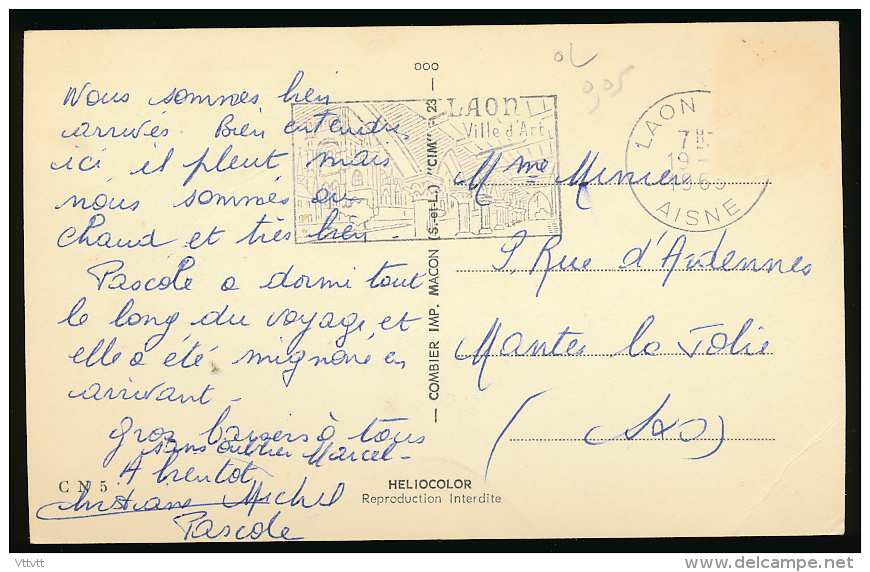 Nous sommes bien
arrivés. Bien entendu,
ici il pleut mais
nous sommes au
chaud et très bien.
Pascale a dormi tout
le long du voyage et
elle a été mignonne en
arrivant.
Gros baisers à tous
sans oublier Marcel.
A bientôt,
Christiane Michel
Pascale
CN 5
ooo
— COMBIER IMP. MACON (S.-et-L.) "CIM" — 23 —
HELIOCOLOR
Reproduction Interdite
LAON
Ville d'Art
LAON
19 -
AISNE
Mme Munier
5, Rue d'Ardennes
Mantes la Jolie
(S&O)
Vttvtt
delcampe.net